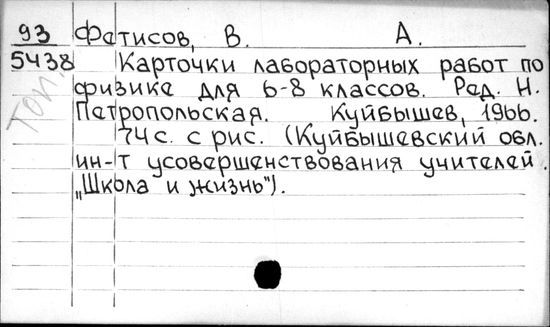 93 Фатисов, В. А.
5438 Карточки лабораторных работ по
физике для 6-8 классов. Ред. Н.
Петропольская. Куйбышев, 1966.
74с. с рис. (Куйбышевский обл.
ин-т усовершенствования учителей.
„Школа и жизнь").
Топ.